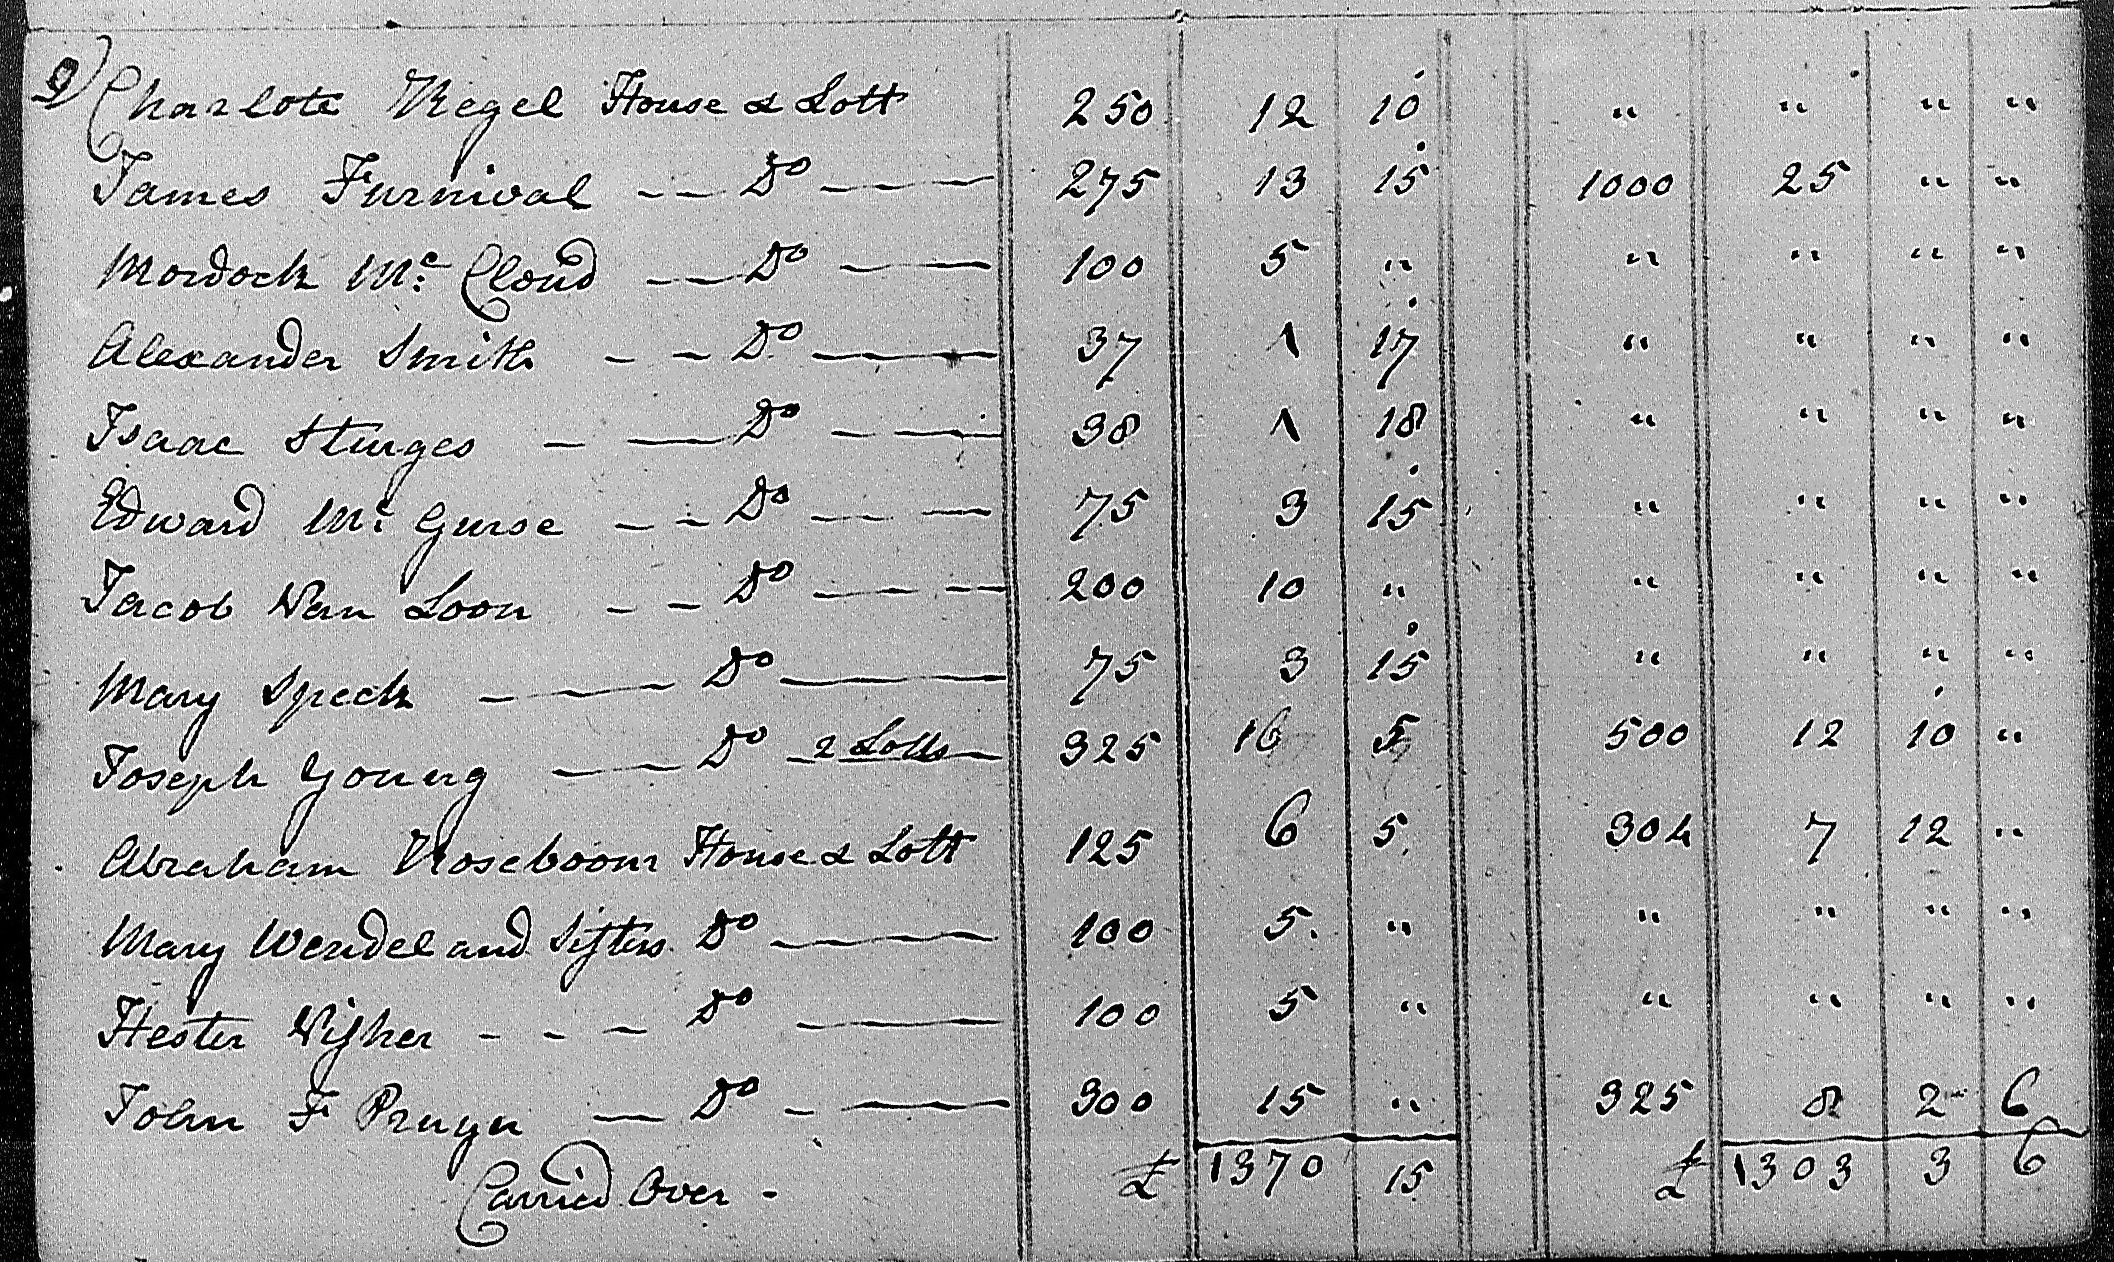 9) Charlote Regel House & Lott 250 12 10 " " " "
James Furnival -- Do --- 275 13 15 1000 25 " "
Mordock Mc: Cloud -- Do -- 100 5 " " " " "
Alexander Smith -- Do -- 37 1 17 " " " "
Isaac Sturges -- Do -- 38 1 18 " " " "
Edward Mc: Gurse -- Do -- 75 3 15 " " " "
Jacob Van Loon -- Do --- 200 10 " " " " "
Mary Speck --- Do -- 75 3 15 " " " "
Joseph Young -- Do - 2 Lotts - 325 16 5 500 12 10 "
Abraham Roseboom House & Lott 125 6 5 304 7 12 "
Mary Wendel and Sisters Do -- 100 5 " " " " "
Hester Visher --- Do -- 100 5 " " " " "
John F Pruyn - Do -- 300 15 " 325 8 2 6
Carried Over - £ 1370 15 £ 1303 3 6